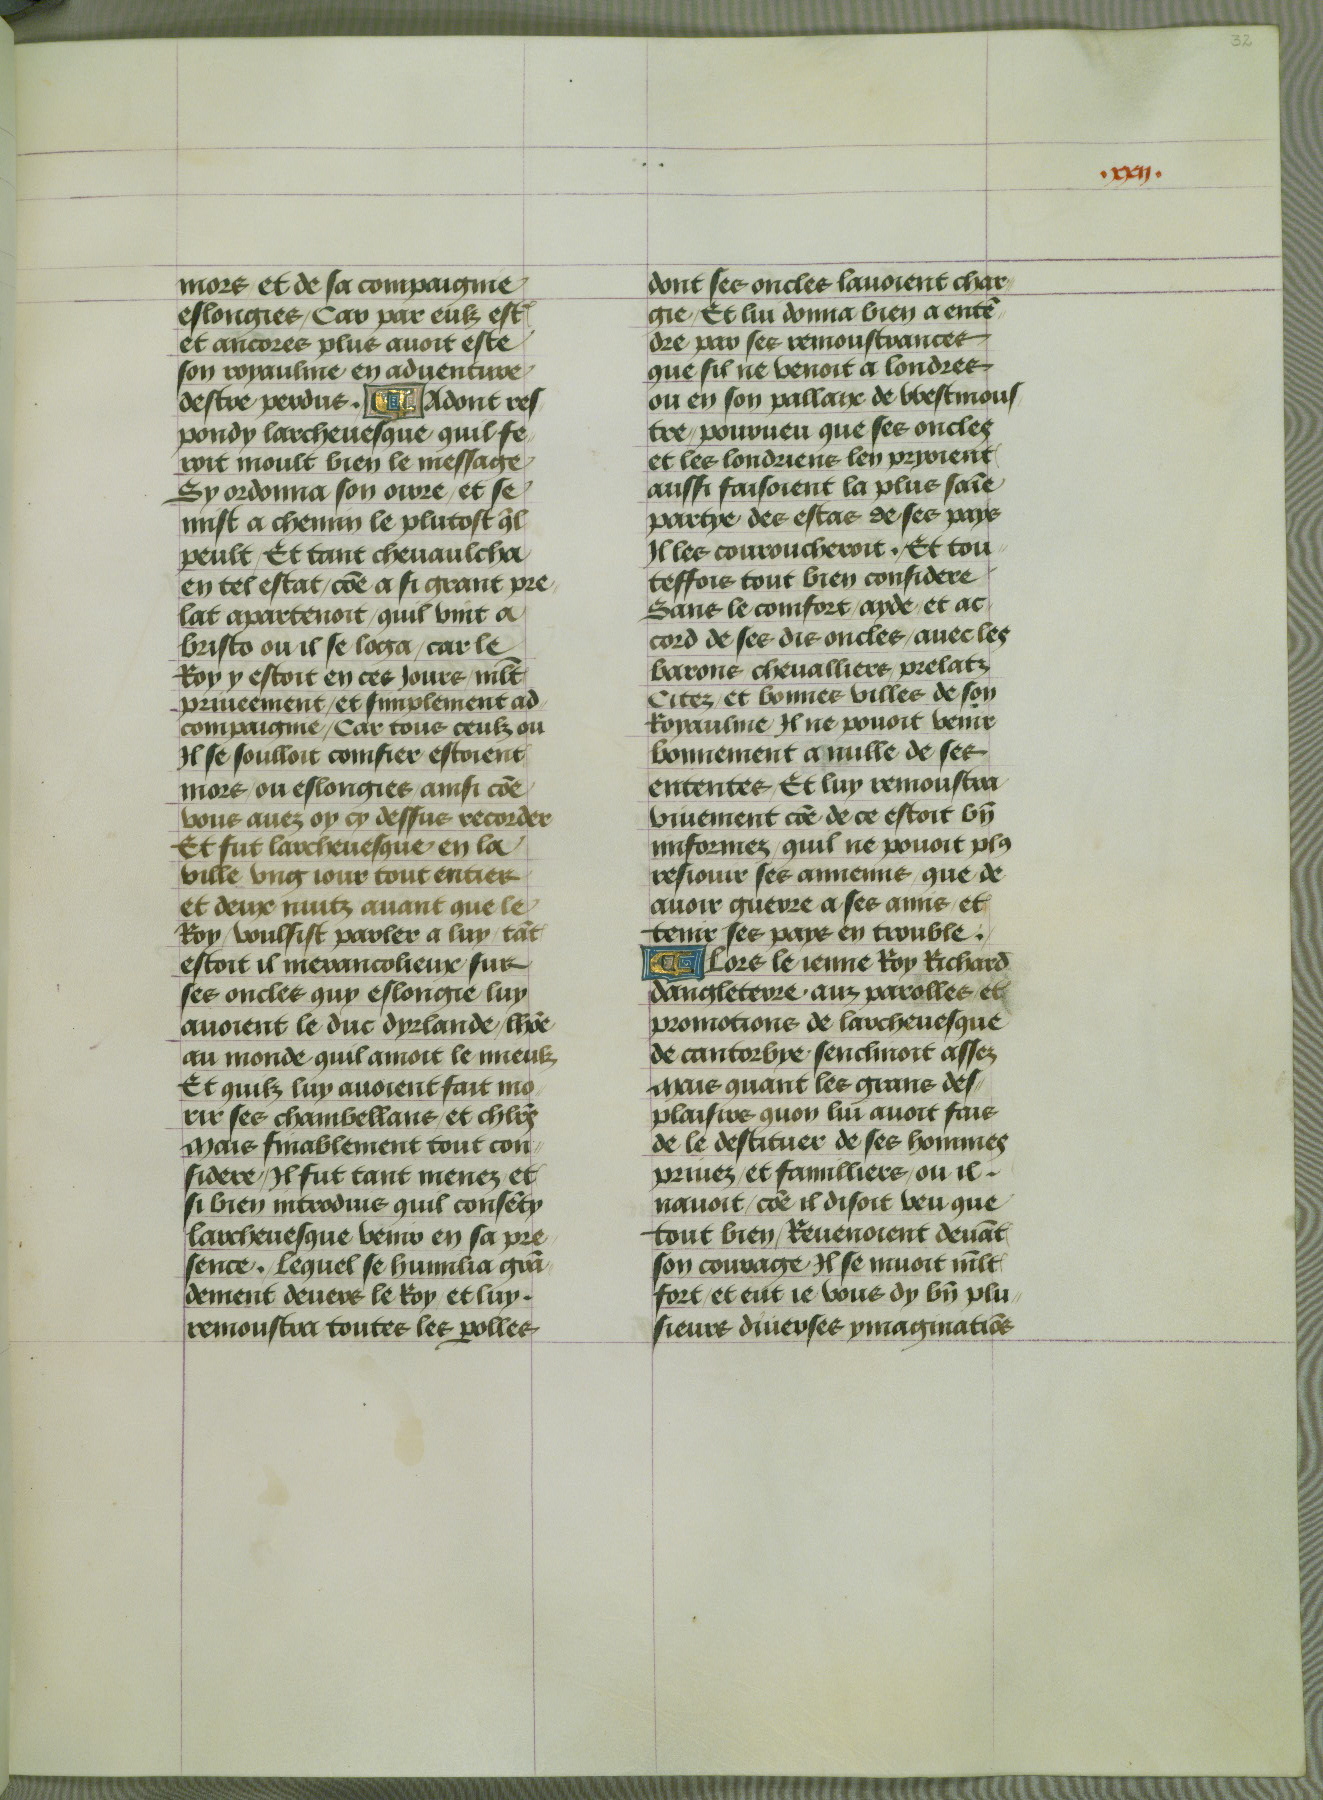 32
.xxij.
mors et de sa compaignie
eslongies / Car par eulz est
et ancores plus avoit este
son royaulme en adventure
destre perdus . Adont res
pondy larchevesque quil fe
roit moult bien le message
Sy ordonna son oirre / et se
mist a chemin le plutost q̃l
peult / Et tant chevaulcha
en tel estat / cõe a si grant pre
lat apartenoit / quil vint a
bristo ou il se loga / car le
Roy y estoit en ces jours / mlt̃
priveement / et simplement ad
compaignie / Car tous ceulz ou
Il se soulloit comfier estoient
mors / ou eslongies ainsi cõe
vous avez oy cy dessus recorder
Et fut larchevesque en la
ville ung iour tout entier
et deux nuitz avant que le
Roy / voulsist parler a luy / tãt
estoit il merancolieux sur
ses oncles quy eslongie luy
avoient le duc dyrlande / lhõe
au monde quil amoit le mieulz
Et quilz luy avoient fait mo
rir ses chambellans / et chlr̃s
Mais finablement tout con
sidere / Il fut tant menez / et
si bien introduis quil consẽty
larchevesque venir en sa pre
sence . Lequel se humilia grã
dement devers le Roy / et luy .
remoustra toutes les polles
dont ses oncles lavoient char
gie / Et lui donna bien a entẽ
dre par ses remoustrances
que sil ne venoit a londres
ou en son pallaix de westmous
tre / pourveu que ses oncles
et les londriens len pryoient
aussi faisoient la plus saĩe
partye des estas de ses pays
Il les couroucheroit . Et tou
teffois tout bien considere
Sans le comfort / ayde / et ac
cord de ses dis oncles / avec les
barons chevalliers / prelatz
Citez / et bonnes villes de son
Royaulme / Il ne pouoit venir
bonnement a nulle de ses
ententes / Et luy remoustra
vivement cõe de ce estoit bñ
imformez / quil ne pouoit plꝰ
resiouir ses annemis / que de
avoir guerre a ses amis / et
tenir ses pays en trouble .
Lors le ienne Roy Richard
dangleterre . aux parolles / et
promotions de larchevesque
de cantorbye senclinoit assez
Mais quant les grans des
plaisirs quon lui avoit fais
de le destituer de ses hommes
privez / et familliers / ou il .
navoit / cõe il disoit veu que
tout bien / Revenoient devãt
son courage / Il se muoit mlt̃
fort / et eut ie vous dy bñ plu
sieurs diverses ymaginatiõs